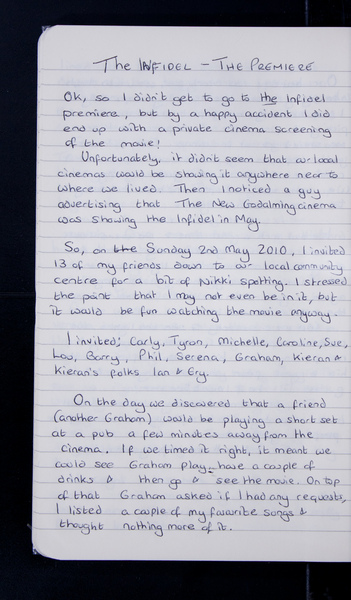 The INFIDEL - THE PREMIERE
Ok, so I didn't get to go to the Infidel
premiere, but by a happy accident I did
end up with a private cinema screening
of the movie!
Unfortunately, it didn't seem that our local
cinemas would be showing it anywhere near to
where we lived. Then I noticed a guy
advertising that The New Godalming cinema
was showing the Infidel in May.
So, on the Sunday 2nd May 2010, I invited
13 of my friends down to our local community
centre for a bit of Nikki spotting. I stressed
the point that I may not even be in it, but
it would be fun watching the movie anyway.
I invited; Carly, Tyron, Michelle, Caroline, Sue,
Lou, Barry, Phil, Serena, Graham, Kieran &
Kieran's folks Ian & Gry.
On the day we discovered that a friend
(another Graham) would be playing a short set
at a pub a few minutes away from the
cinema. If we timed it right, it meant we
could see Graham play, have a couple of
drinks & then go & see the movie. On top
of that Graham asked if I had any requests,
I listed a couple of my favourite songs &
thought nothing more of it.